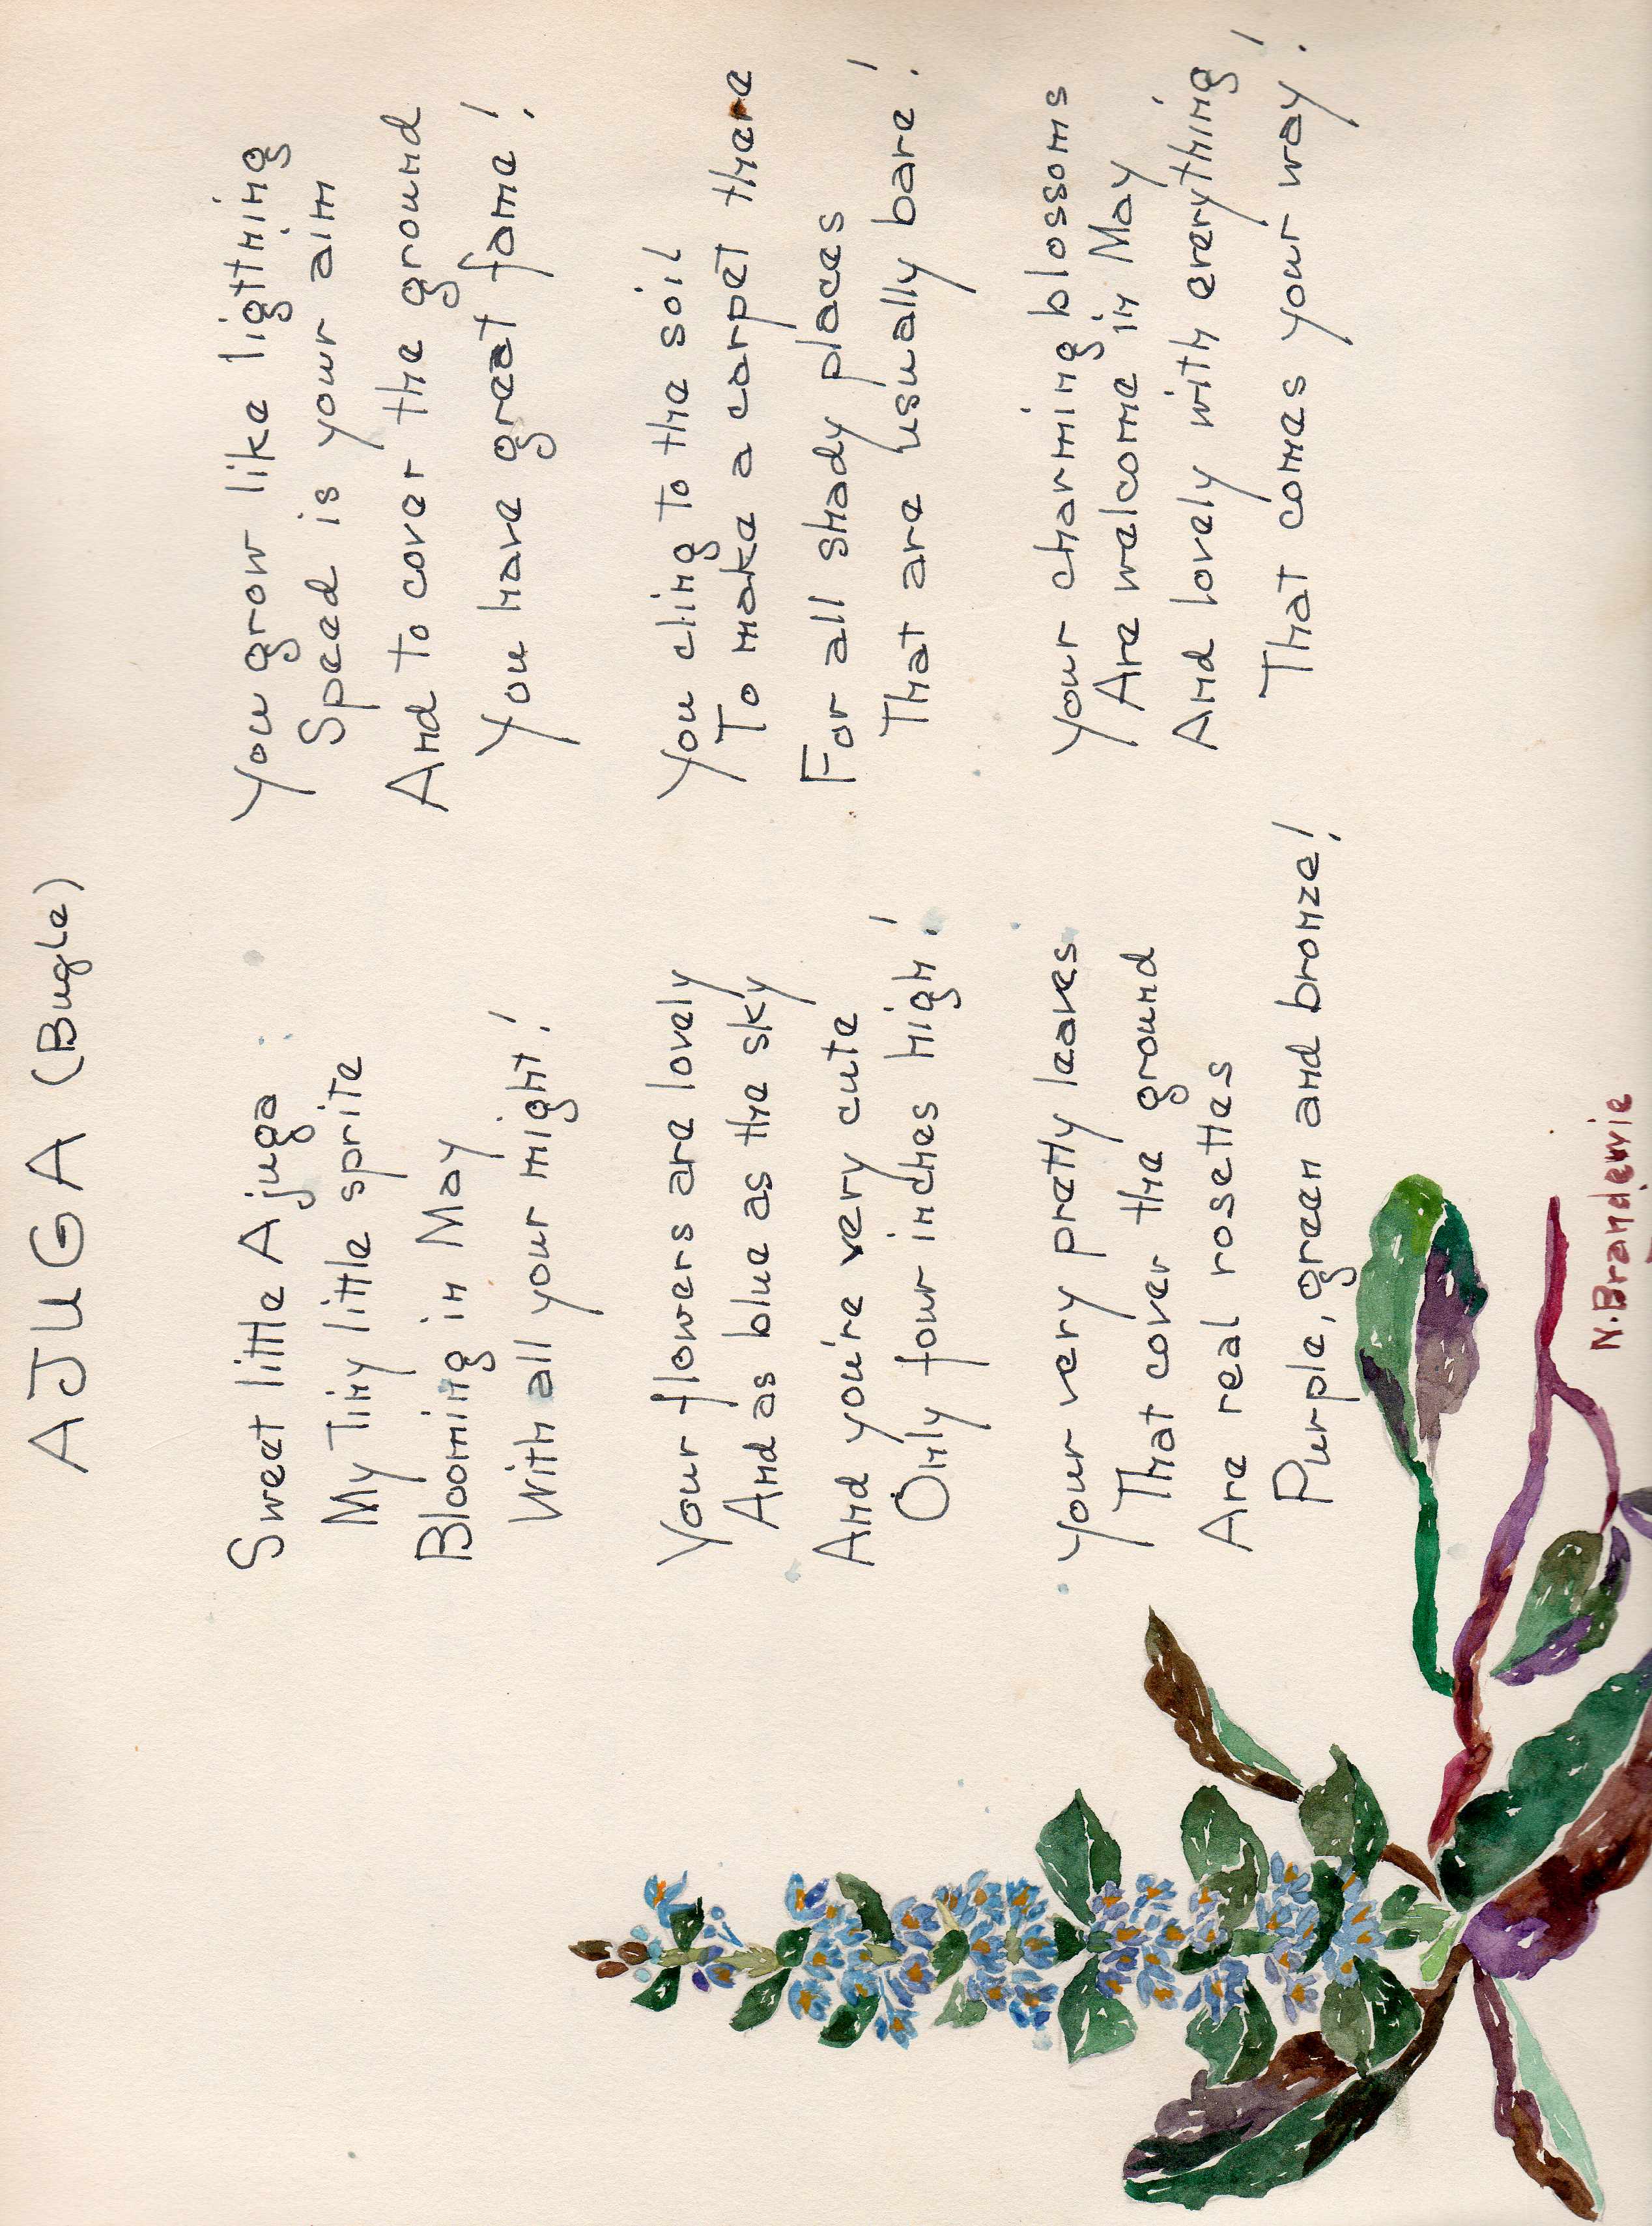 AJUGA (Bugle)
Sweet little Ajuga
My Tiny little sprite
Blooming in May
With all your might!
Your flowers are lovely
And as blue as the sky
And you're very cute
Only four inches high!
Your very pretty leaves
That cover the ground
Are real rosettes
Purple, green and bronze!
You grow like ligtning
Speed is your aim
And to cover the ground
You have great fame!
You cling to the soil
To make a carpet there
For all shady places
That are usually bare!
Your charming blossoms
Are welcome in May
And lovely with everything!
That comes your way!
N. Brandewie